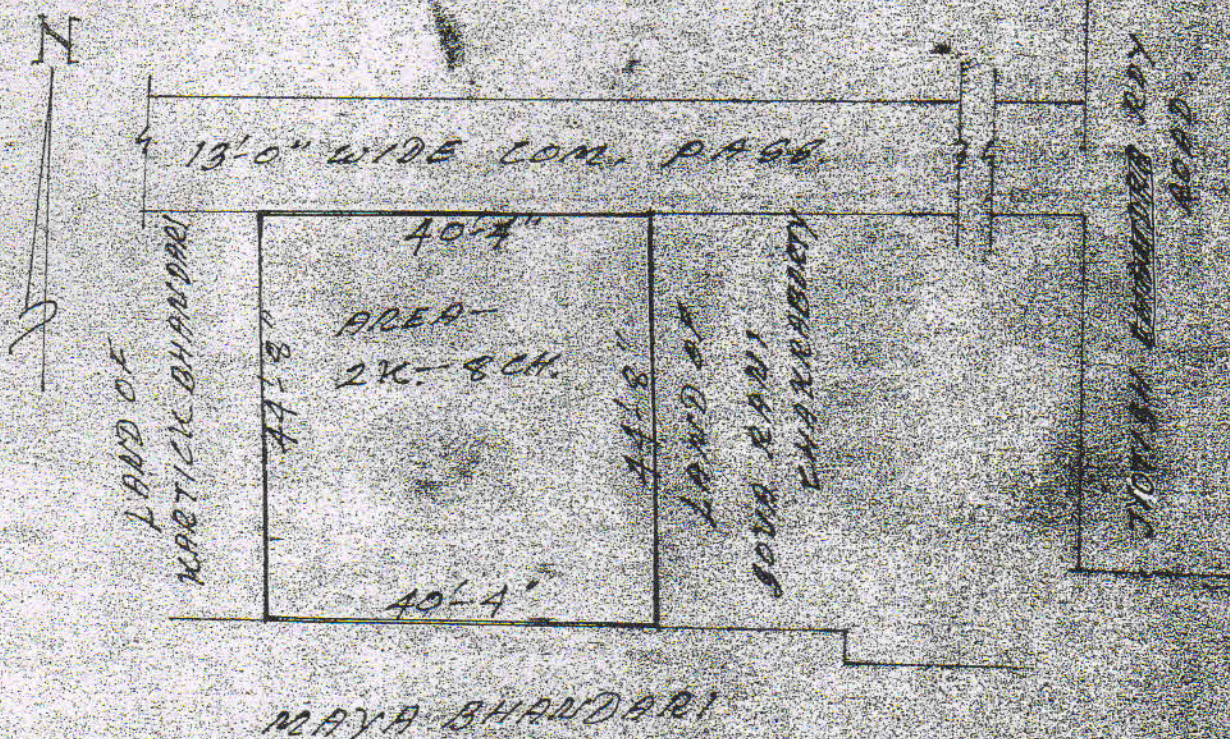 N
13'-0" WIDE COM. PASS.
40'-4"
AREA-
2K.-8CH.
44'-8"
44'-8"
40'-4"
LAND OF
KARTICK BHANDARI
LAND OF
RANI
CHAKRABERTY
JYOTISH ROY
ROAD.
MAYA BHANDARI